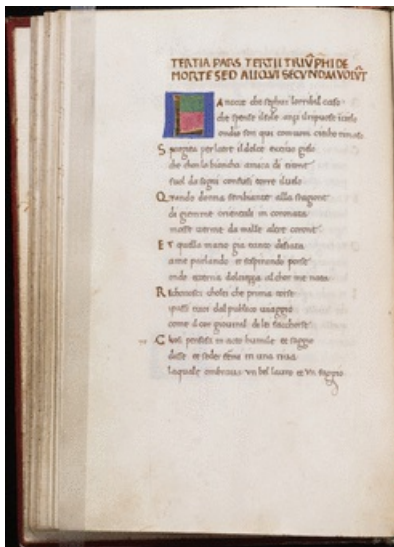 TERTIA PARS TERTII TRIV̄PHI DE
MORTE SED ALII QVI SECVNDVM VOLV̄T
LA nocte che seguì lorribil caso
che spense il sole anzi il ripuose in cielo
ondio son qui comuom cieco rimaso
Spargea per laere il dolce estiuo gielo
che con la biancha amica di titone
suol da sogni confusi torre il uelo
Quando donna sembiante alla stagione
di gemme orientale in coronata
mosse uerme da mille altre corone
Et quella mano gia tanto desiata
ame parlando et sospirando porse
onde eterna dolcezza al chor me nata
Richonosci cholei che prima torse
i passi tuoi dal publico uiaggio
come il cor giouenil di lei sacchorse
Chosi pensosa in acto humile et saggio
in una riua
laquale ombraua vn bel lauro et vn faggio